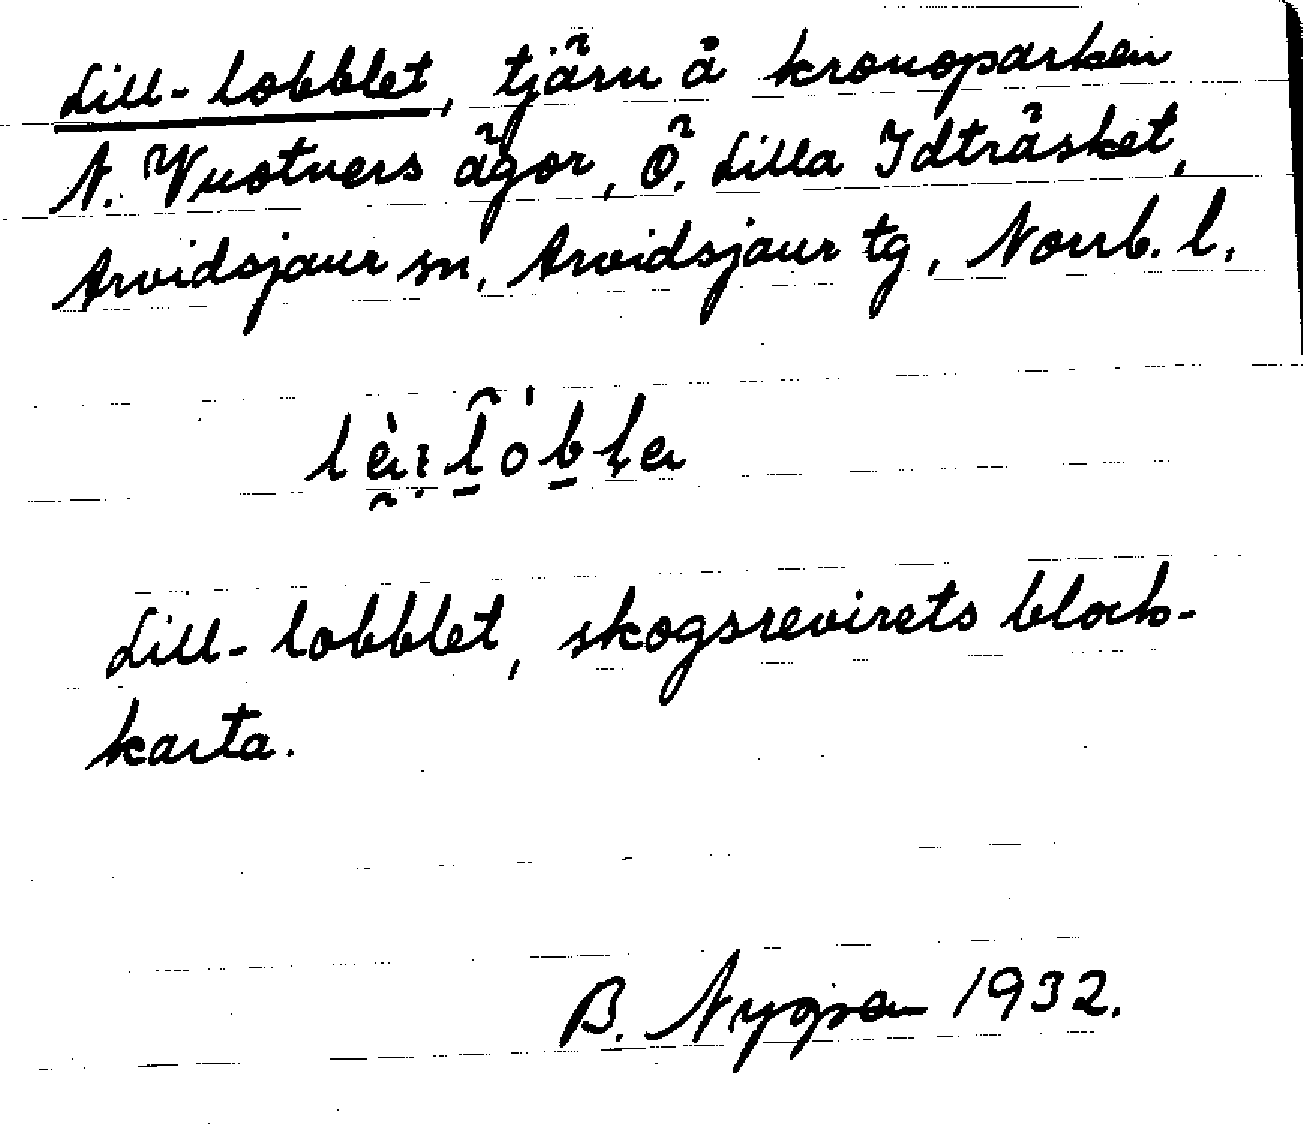 Lill-lobblet, tjärn å kronoparken
N. Vuotners ägor, Ö. Lilla Idträsket,
Arvidsjaur sn, Arvidsjaur tg, Norrb. l.
Lill-lobblet, skogsrevirets block-
karta.
B. Nygren 1932.